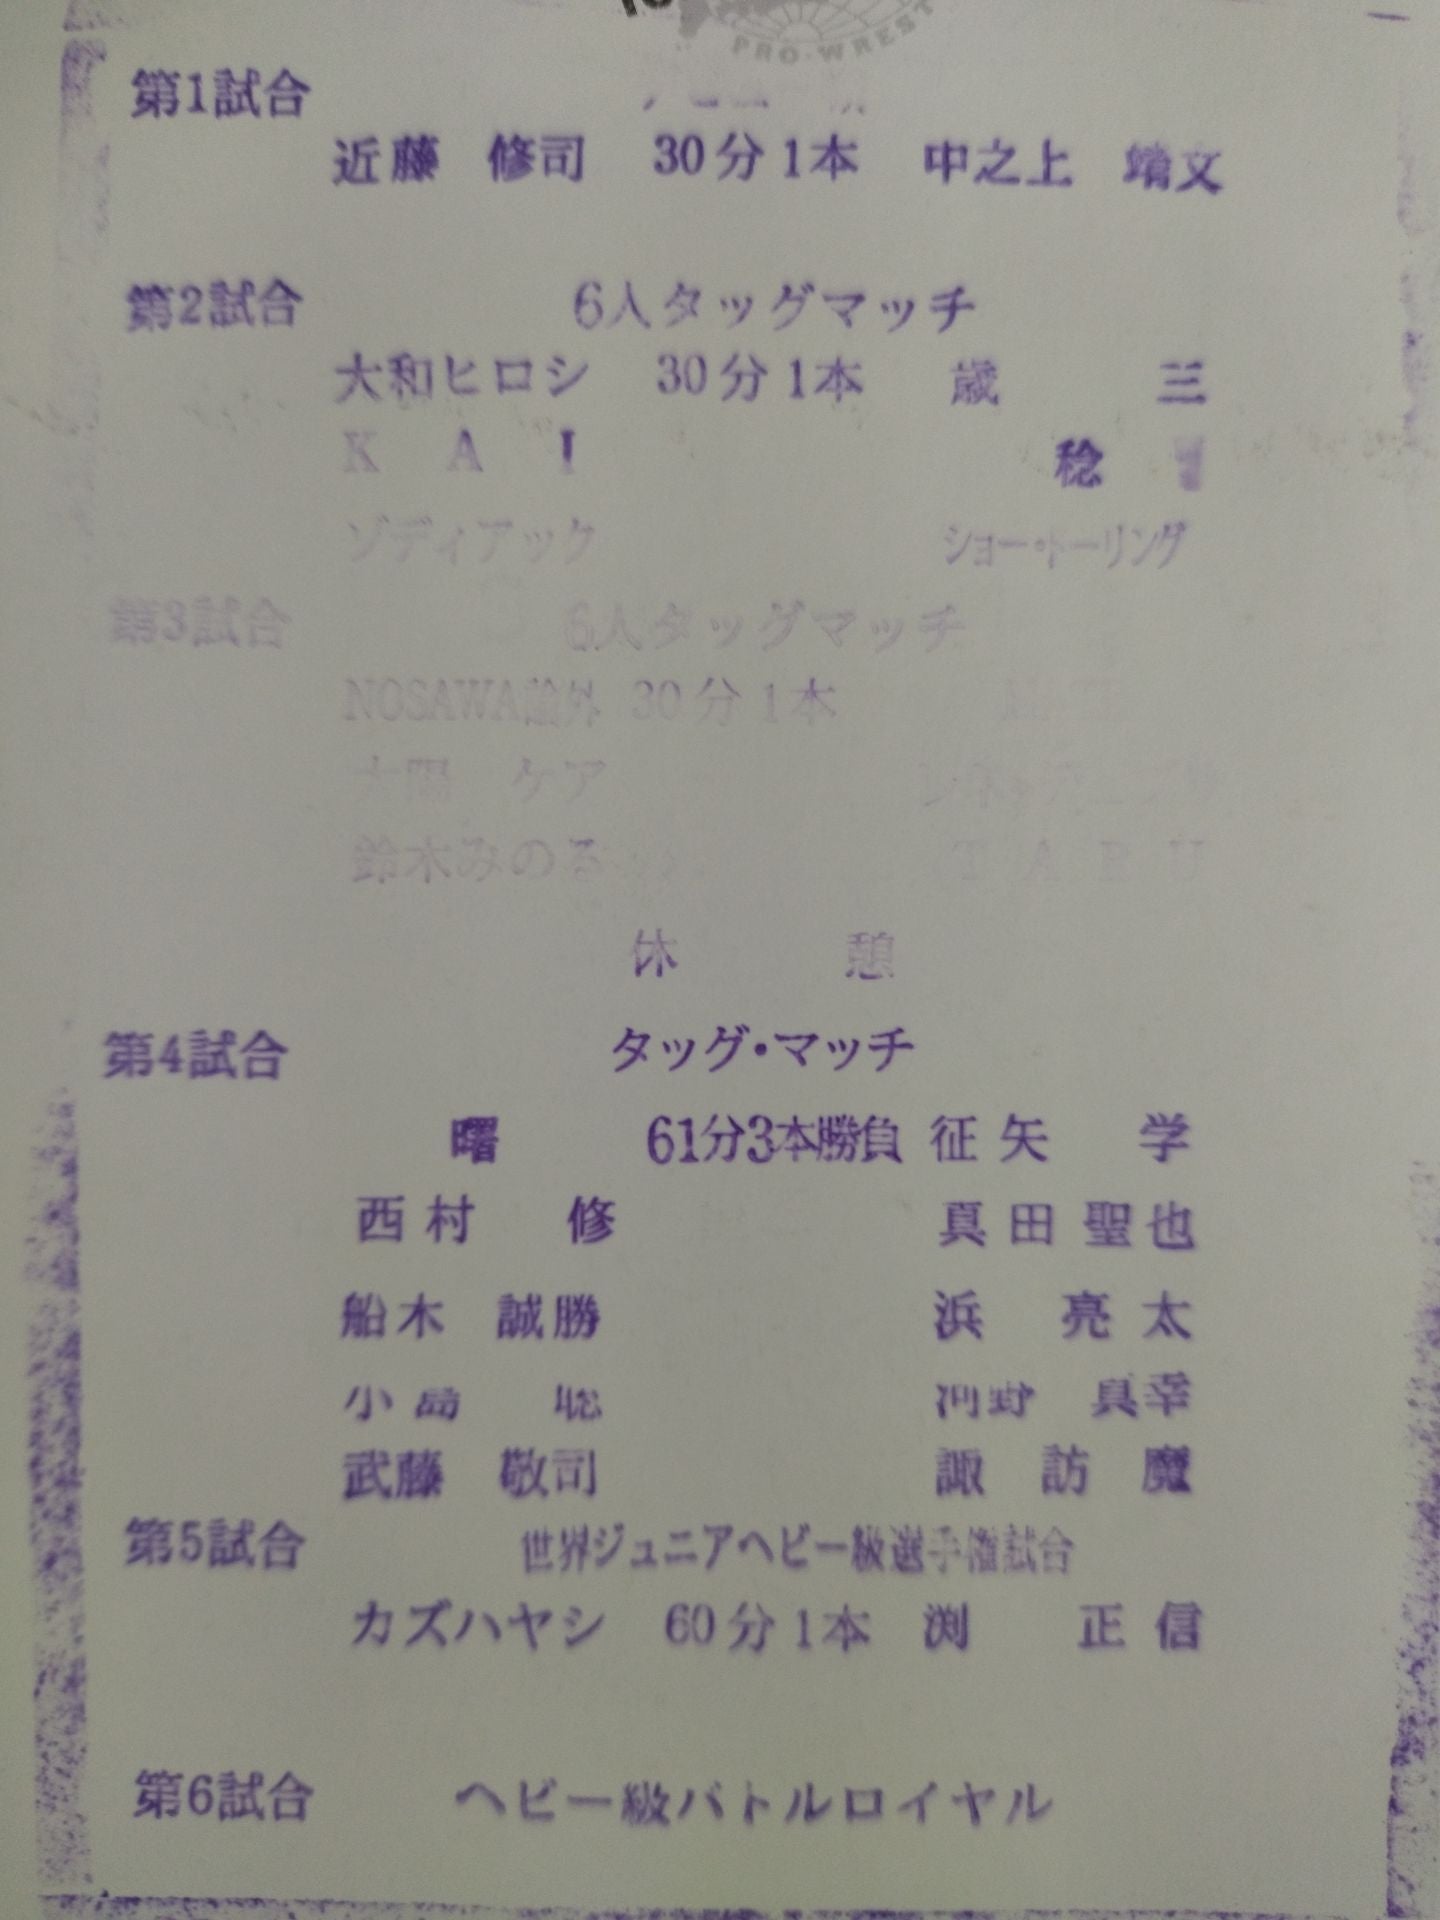 PRO-WREST
第1試合
近藤 修司 30分1本 中之上 靖文
第2試合 6人タッグマッチ
大和ヒロシ 30分1本 歳 三
K A I 稔
ゾディアック ショー・トーリング
第3試合 6人タッグマッチ
NOSAWA論外 30分1本
太陽 ケア
鈴木みのる T A R U
休 憩
第4試合 タッグ・マッチ
曙 61分3本勝負 征矢 学
西村 修 真田聖也
船木 誠勝 浜 亮太
小島 聡 河野 真幸
武藤 敬司 諏訪魔
第5試合 世界ジュニアヘビー級選手権試合
カズハヤシ 60分1本 渕 正信
第6試合 ヘビー級バトルロイヤル